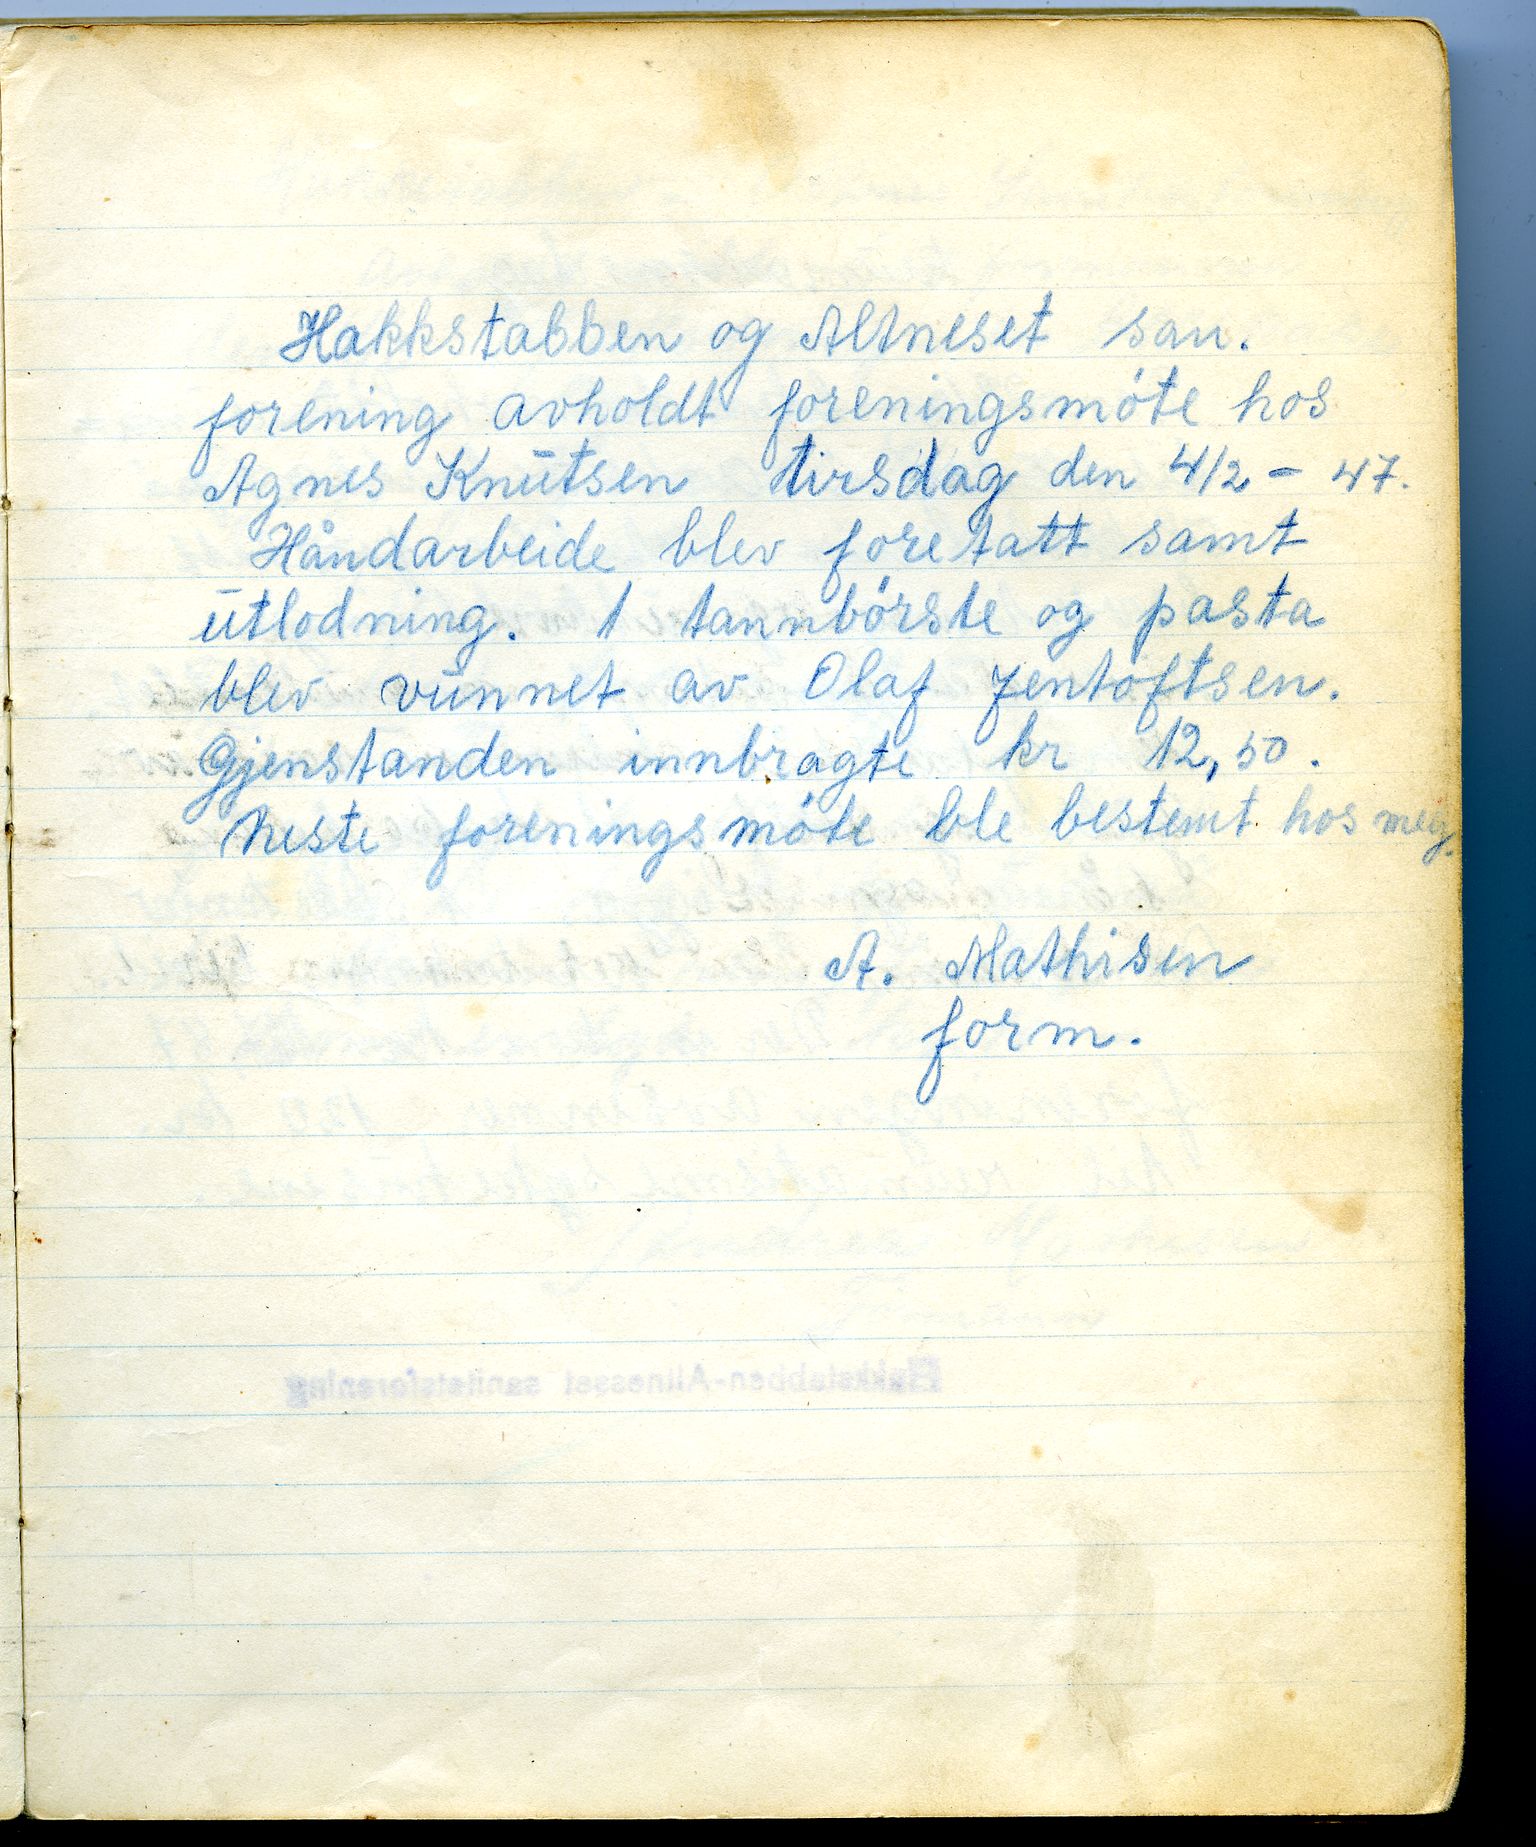 Hakkstabben og Altneset san.
forening avholdt foreningsmöte hos
Agnes Knutsen tirsdag den 4/2 - 47.
Håndarbeide blev foretatt samt
utlodning. 1 tannbörste og pasta
blev vunnet av Olaf Jentoftsen.
Gjenstanden innbragte kr 12,50.
Neste foreningsmöte ble bestemt hos meg.
A. Mathisen
form.
Hakkstabben-Altnesset sanitetsforening